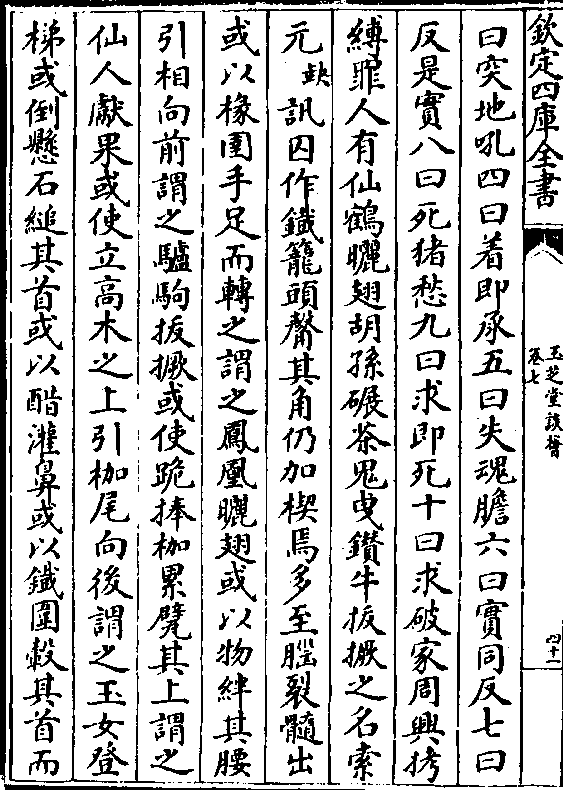 欽定四庫全書
玉芝堂談薈
卷七
四十一
曰突地吼四曰着即承五曰失魂膽六曰實同反七曰
反是實八曰死猪愁九曰求即死十曰求破家周興拷
縛罪人有仙鶴曬翅胡孫碾茶鬼曳鑽牛抜撅之名索
元缺訊囚作鐵籠頭鞶其角仍加楔焉多至腦裂髓出
或以椽圍手足而轉之謂之鳳凰曬翅或以物絆其腰
引相向前謂之驢駒抜撅或使跪捧枷累甓其上謂之
仙人獻果或使立高木之上引枷尾向後謂之玉女登
梯或倒懸石縋其首或以醋灌鼻或以鐵圏轂其首而